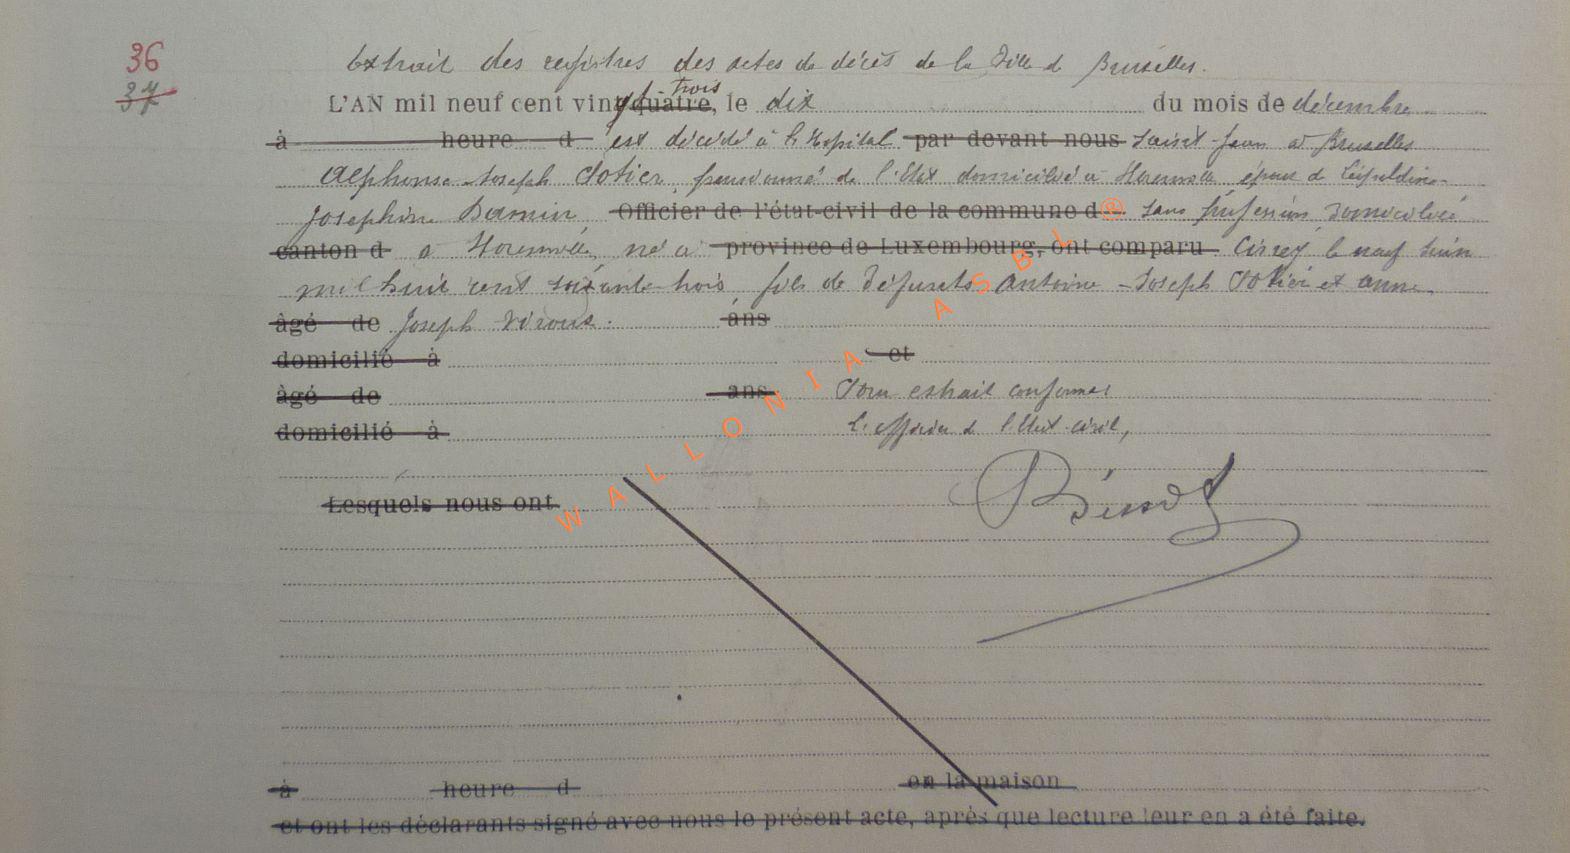 36
37
Extrait des registres des actes de décès de la Ville de Bruxelles.
L'AN mil neuf cent vingt quatre, trois le dix du mois de décembre
à heure d est décédé à l'Hopital par devant nous Saint-Jean à Bruxelles
Alphonse Joseph Clotier, pensionné de l'Etat domicilié à Horenville époux de Léopoldine
Joséphine Officier de l'état-civil de la commune d sans profession domicilié
canton d à Horenville, né à province de Luxembourg, ont comparu le neuf juin
mil huit cent soixante trois, fils de défunts Antoine-Joseph Clotier et Anne
âgé de Joseph ans
domicilié à et
âgé de ans Pour extrait conforme
domicilié à L'officier de l'Etat-civil,
Lesquels nous ont
à heure d en la maison
et ont les déclarants signé avec nous le présent acte, après que lecture leur en a été faite.
WALLONIA ASBL ®